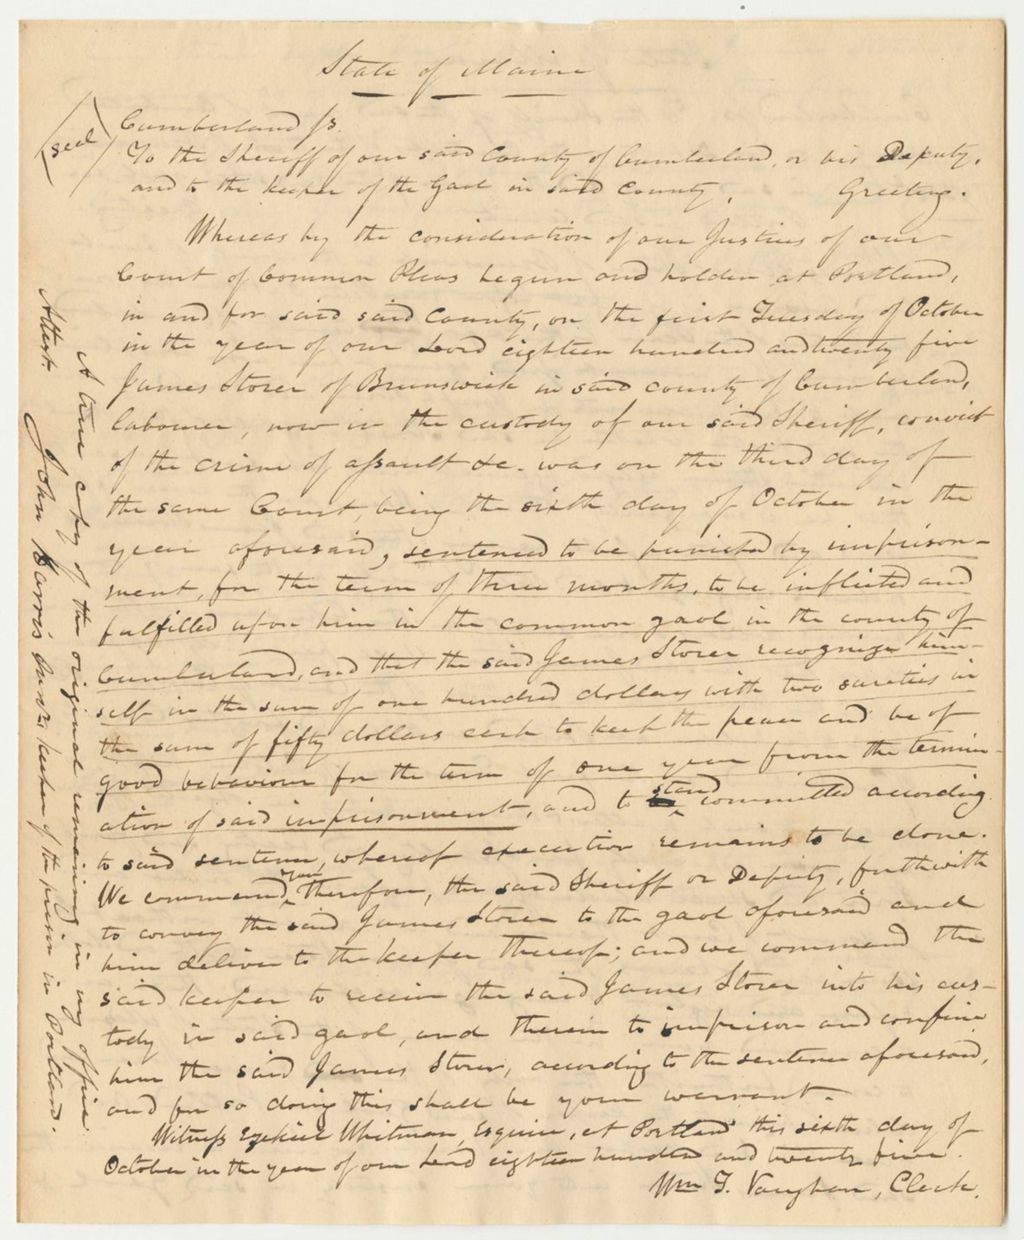 State of Maine
seal
Cumberland ss.
To the Sheriff of our said County of Cumberland, or his Deputy,
and to the keeper of the Gaol in said County, Greeting.
Whereas by the consideration of our Justices of our
Court of Common Pleas begun and holden at Portland,
in and for said said County, on the first Tuesday of October
in the year of our Lord eighteen hundred and twenty five
James Storer of Brunswick in said county of Cumberland,
labourer, now in the custody of our said Sheriff, convict
of the crime of assault &c. was on the third day of
the same Court, being the sixth day of October in the
year aforesaid, sentenced to be punished by imprison-
ment, for the term of three months, to be inflicted and
fulfilled upon him in the common gaol in the county of
Cumberland, and that the said James Storer recognize him-
self in the sum of one hundred dollars with two sureties in
the sum of fifty dollars each to keep the peace and be of
good behaviour for the term of one year from the termin-
ation of said imprisonment, and to stand committed acording
to said sentence, whereof execution remains to be done.
We command you therefore, the said Sheriff or Deputy, forthwith
to convey the said James Storer to the gaol aforesaid and
him deliver to the keeper thereof; and we command the
said keeper to receive the said James Storer into his cus-
tody in said gaol, and therein to imprison and confine
him the said James Storer, acording to the sentence aforesaid,
and for so doing this shall be your warrant.
Witness Ezekiel Whitman, Esquire, at Portland this sixth day of
October in the year of our Lord eighteen hundred and twenty five.
Wm T. Vaughan, Clerk.
A true copy of the original remaining in my office
Attest. John Harris keeper of the prison in Portland.